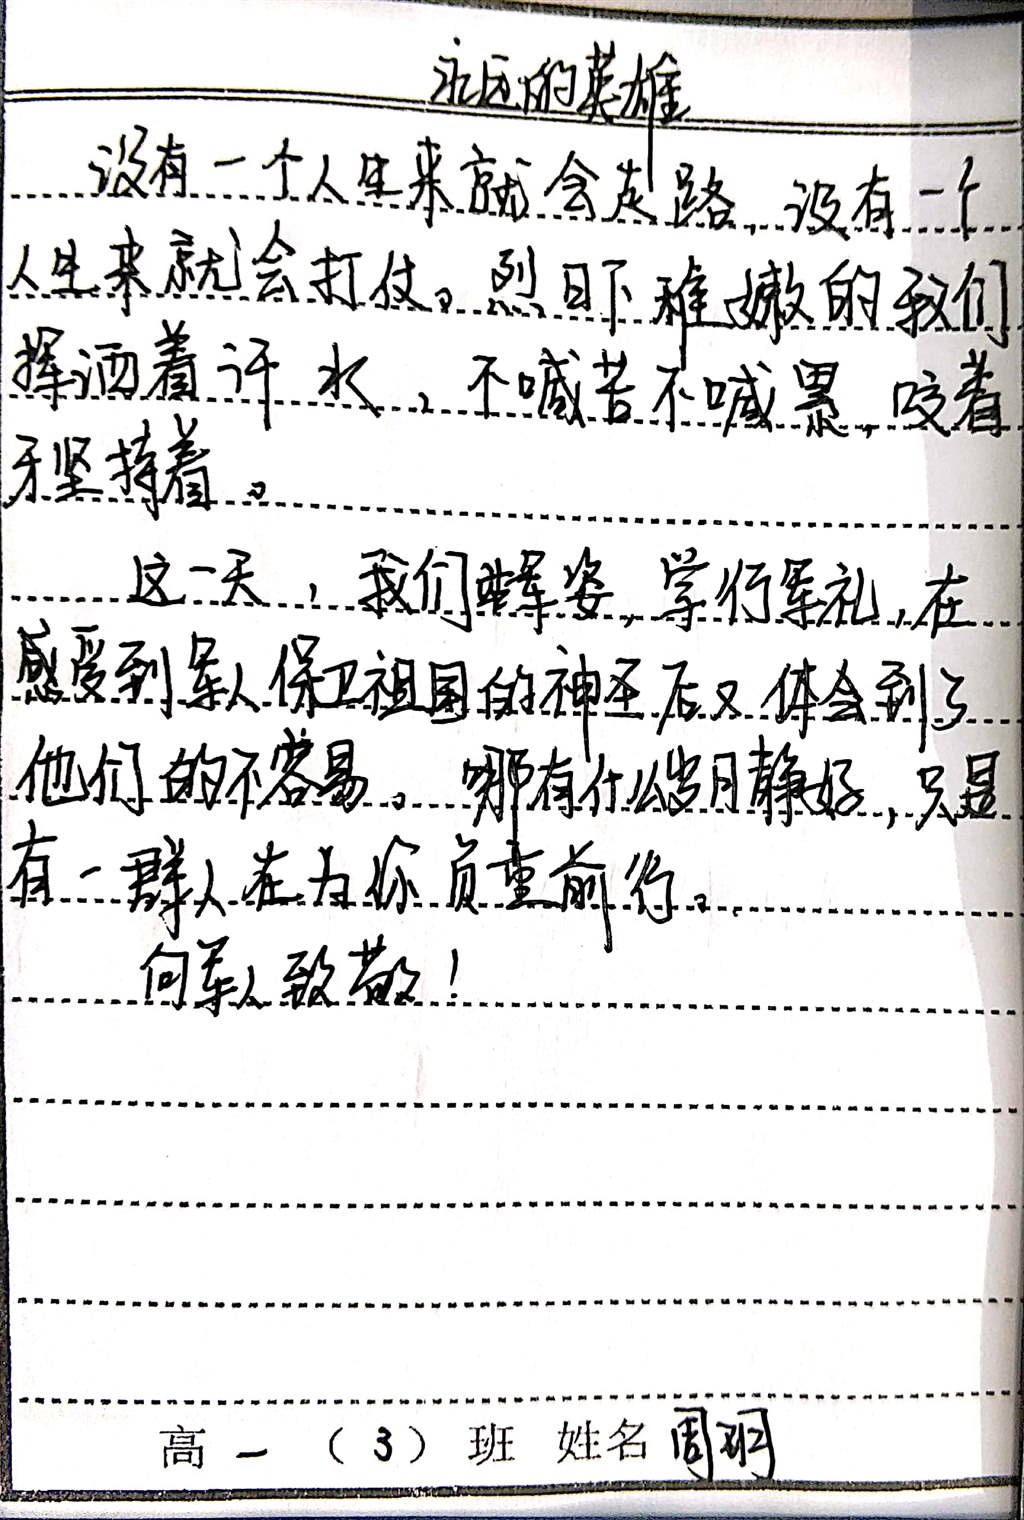 永远的英雄
没有一个人生来就会走路,没有一个
人生来就会打仗。烈日下稚嫩的我们
挥洒着汗水,不喊苦不喊累,咬着
牙坚持着。
这一天,我们站军姿,学行军礼,在
感受到军人保卫祖国的神圣后又体会到了
他们的不容易。哪有什么岁月静好,只是
有一群人在为你负重前行。
向军人致敬!
高一(3)班 姓名周玥